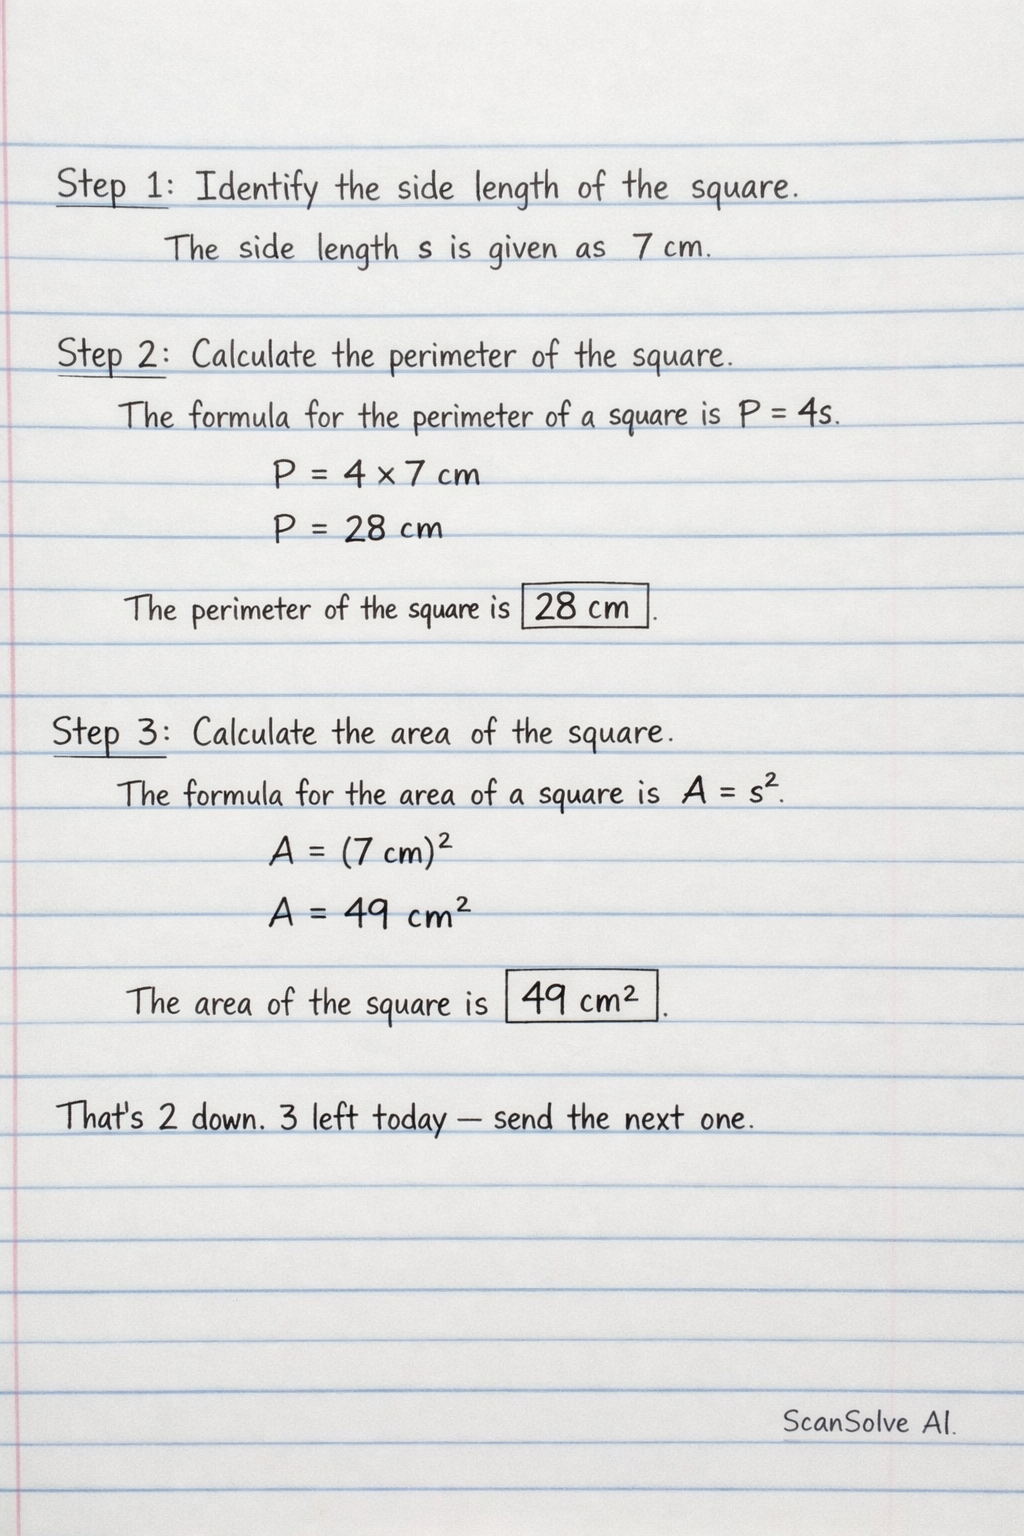 Step 1: Identify the side length of the square.
The side length s is given as 7 cm.
Step 2: Calculate the perimeter of the square.
The formula for the perimeter of a square is P = 4s.
P = 4 × 7 cm
P = 28 cm
The perimeter of the square is 28 cm.
Step 3: Calculate the area of the square.
The formula for the area of a square is A = s².
A = (7 cm)²
A = 49 cm²
The area of the square is 49 cm².
That's 2 down. 3 left today — send the next one.
ScanSolve AI.